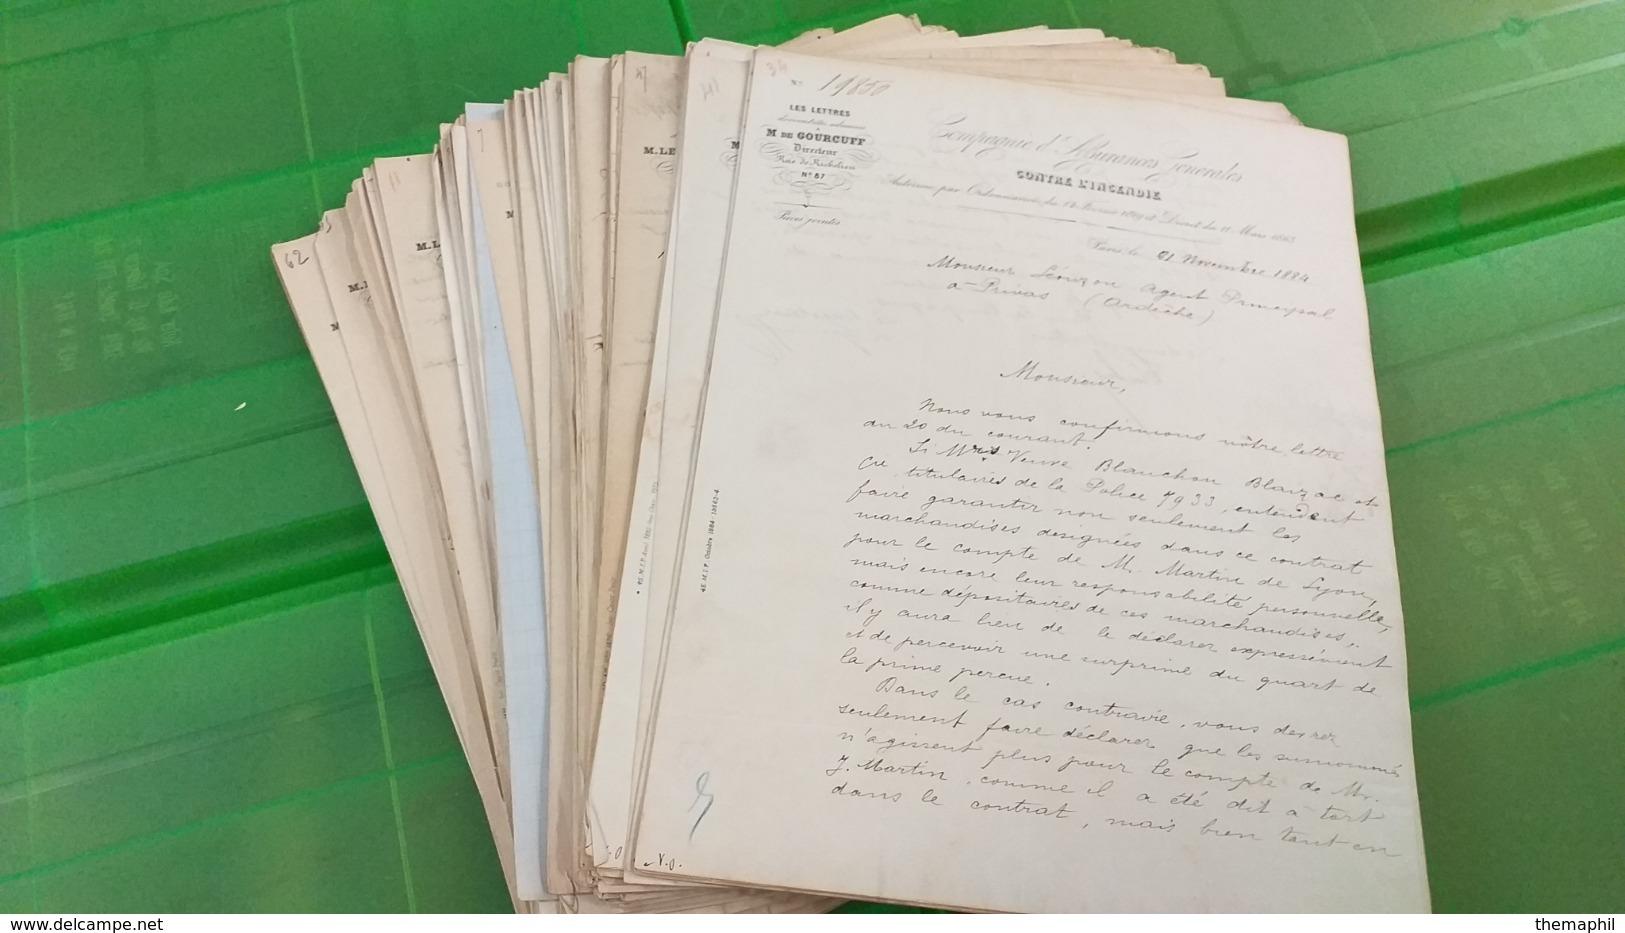 34
N° 19850
LES LETTRES
doivent être adressées
à
M DE GOURCUFF
Directeur
Rue de Richelieu
N° 87
Pièces jointes
Compagnie d'Assurances Générales
CONTRE L'INCENDIE
Autorisée par Ordonnances du 14 Février 1819 et Décret du 11 Mars 1863
Paris, le 21 Novembre 1884
Monsieur Léouzon agent Principal
à Privas (Ardèche)
Monsieur,
Nous vous confirmons nôtre lettre
du 20 du courant.
Si Mrs Veuve Blanchon Blaizac et
Cie titulaires de la Police 7933, entendent
faire garantir non seulement les
marchandises designées dans ce contrat
pour le compte de M. Martin de Lyon,
mais encore leur responsabilité personnelle,
comme dépositaires de ces marchandises,
il y aura lieu de le déclarer expressément
et de percevoir une surprime du quart de
la prime perçue.
Dans le cas contraire, vous devrez
seulement faire déclarer que les susnommés
n'agissent plus pour le compte de Mr.
J. Martin, comme il a été dit à tort
dans le contrat, mais bien tant en
45. M.I.P. Octobre 1884-13862-4
V.O.
41
47
M. LE
11
M. L
62
M.
www.delcampe.net
themaphil